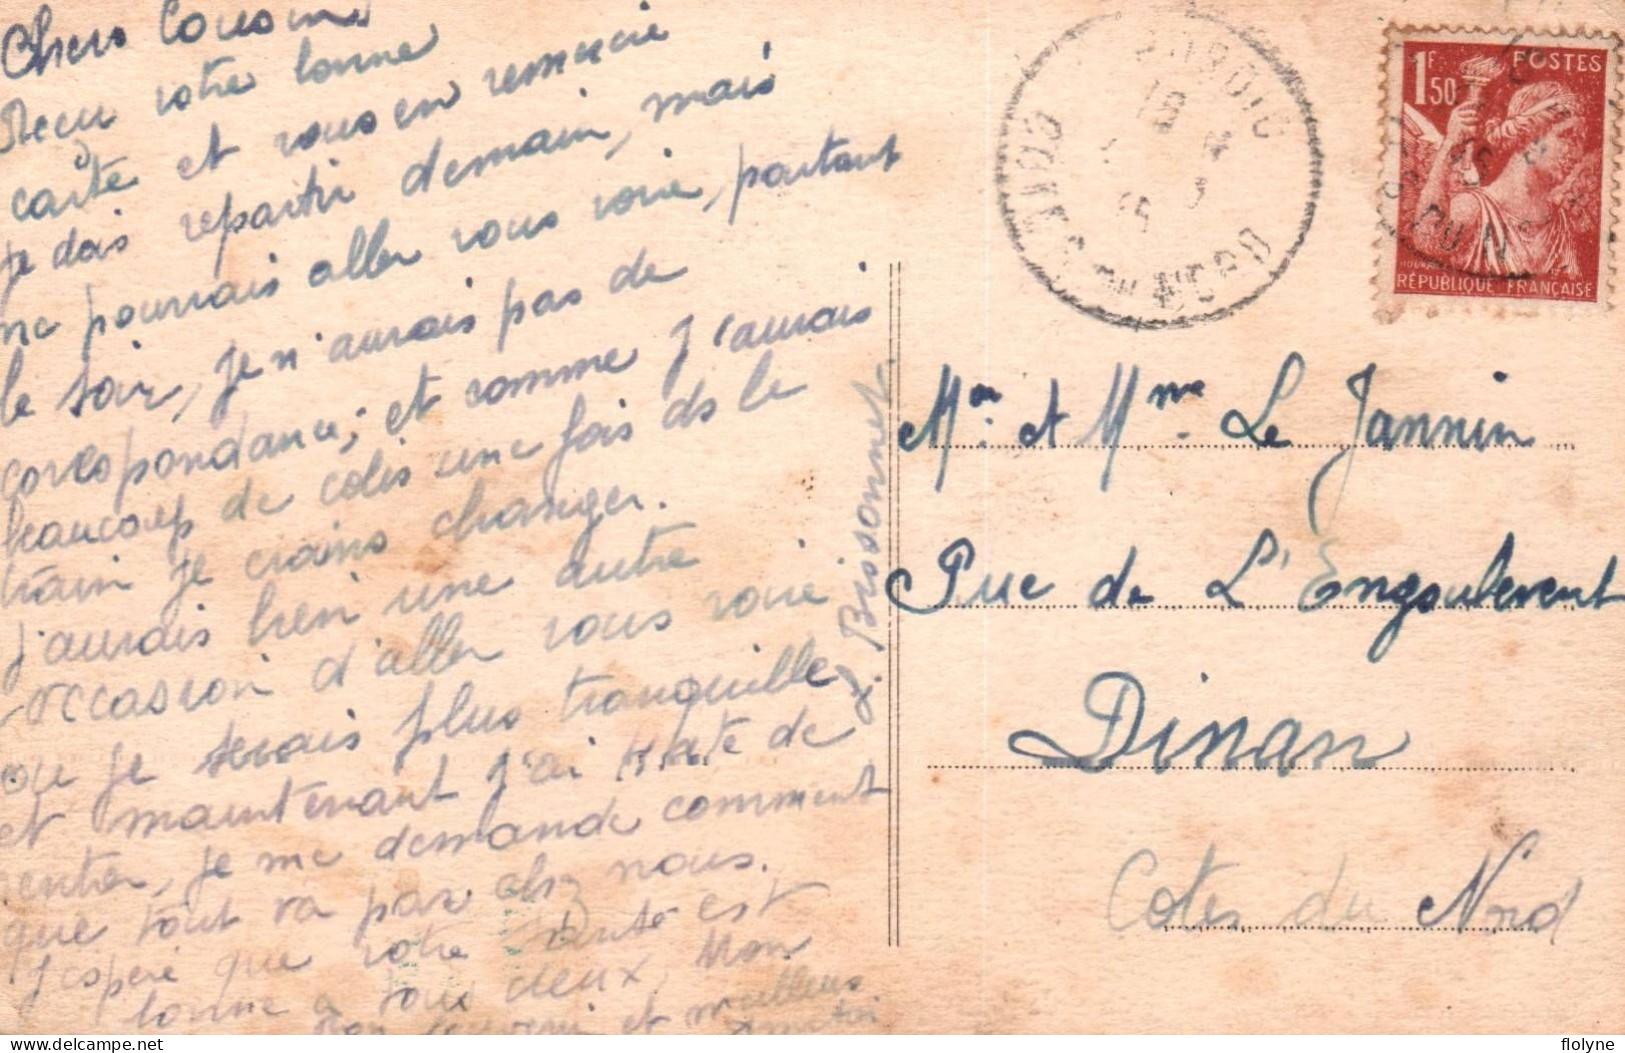 Chers Cousins
Reçu votre bonne
carte et vous en remercie
je dois repartir demain, mais
ne pourrais aller vous voir, partant
le soir, je n'aurais pas de
correspondance; et comme j'aurais
beaucoup de colis une fois ds le
train je crains changer.
j'aurais bien une autre
occasion d'aller vous voir
ou je serais plus tranquille
et maintenant j'ai hate de
rentrer, je me demande comment
que tout va par chez nous.
J'espère que votre santé est
bonne a tous deux, Mon
Bon souvenir et meilleurs
amitiés
J. Bissonnet
COTES DU NORD
1F50 POSTES
RÉPUBLIQUE FRANÇAISE
Mr. et Mme. Le Jannin
Rue de L'Engoulevent
Dinan
Cotes du Nord
flolyne